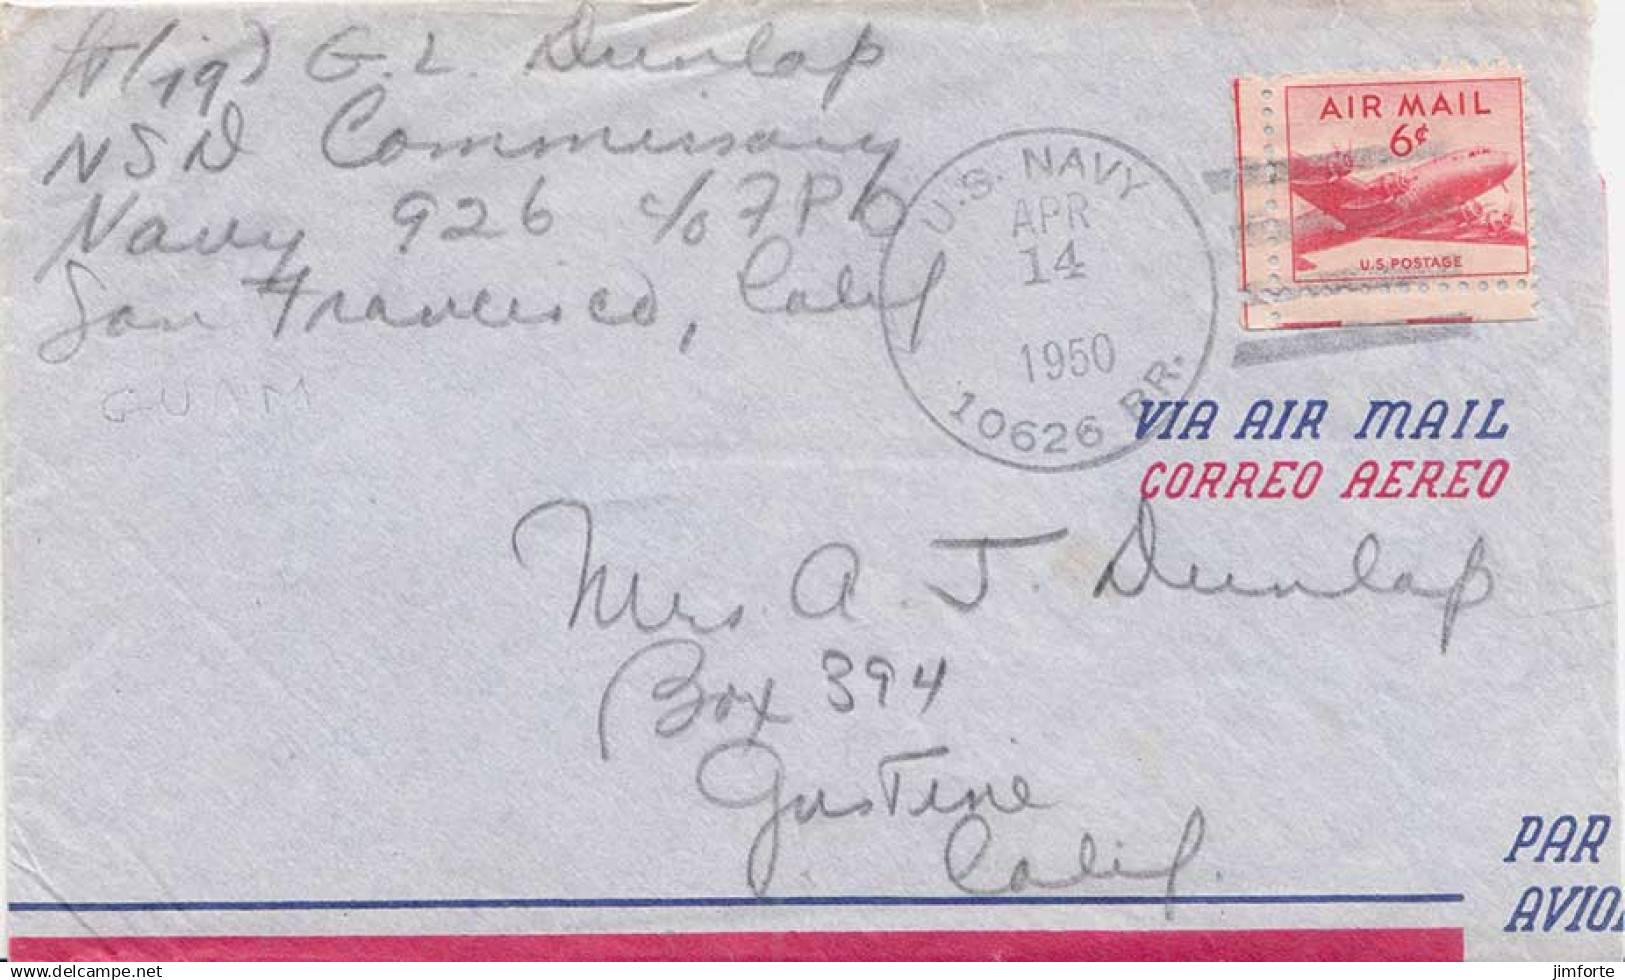 G. L. Dunlap
NSD Commissary
Navy 926 c/o FPO
San Francisco, Calif
GUAM
U.S. NAVY
APR
14
1950
10626 BR.
AIR MAIL
6¢
U.S. POSTAGE
VIA AIR MAIL
CORREO AEREO
Mrs. A. J. Dunlap
Box 394
Gustine
Calif.
PAR
AVION
www.delcampe.net
jimforte